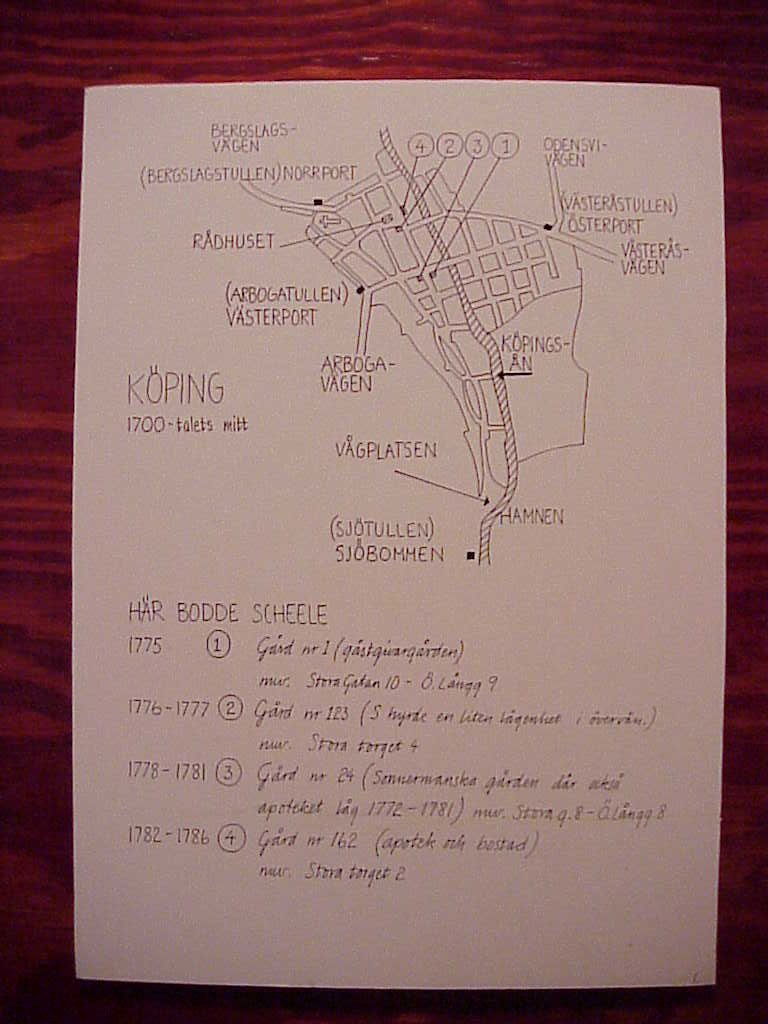 BERGSLAGS-
VÄGEN
(BERGSLAGSTULLEN) NORRPORT
4 2 3 1
ODENSVI-
VÄGEN
(VÄSTERÅSTULLEN)
ÖSTERPORT
RÅDHUSET
VÄSTERÅS-
VÄGEN
(ARBOGATULLEN)
VÄSTERPORT
KÖPINGS-
ÅN
ARBOGA-
VÄGEN
KÖPING
1700-talets mitt
VÅGPLATSEN
HAMNEN
(SJÖTULLEN)
SJÖBOMMEN
HÄR BODDE SCHEELE
1775 1 Gård nr 1 (gästgivargården)
nuv. Stora Gatan 10 - Ö. Långg 9
1776-1777 2 Gård nr 123 (S hyrde en liten lägenhet i övervån.)
nuv. Stora torget 4
1778-1781 3 Gård nr 24 (Sonnermanska gården där också
apoteket låg 1772-1781) nuv. Stora g. 8 - Ö. Långg 8
1782-1786 4 Gård nr 162 (apotek och bostad)
nuv. Stora torget 2